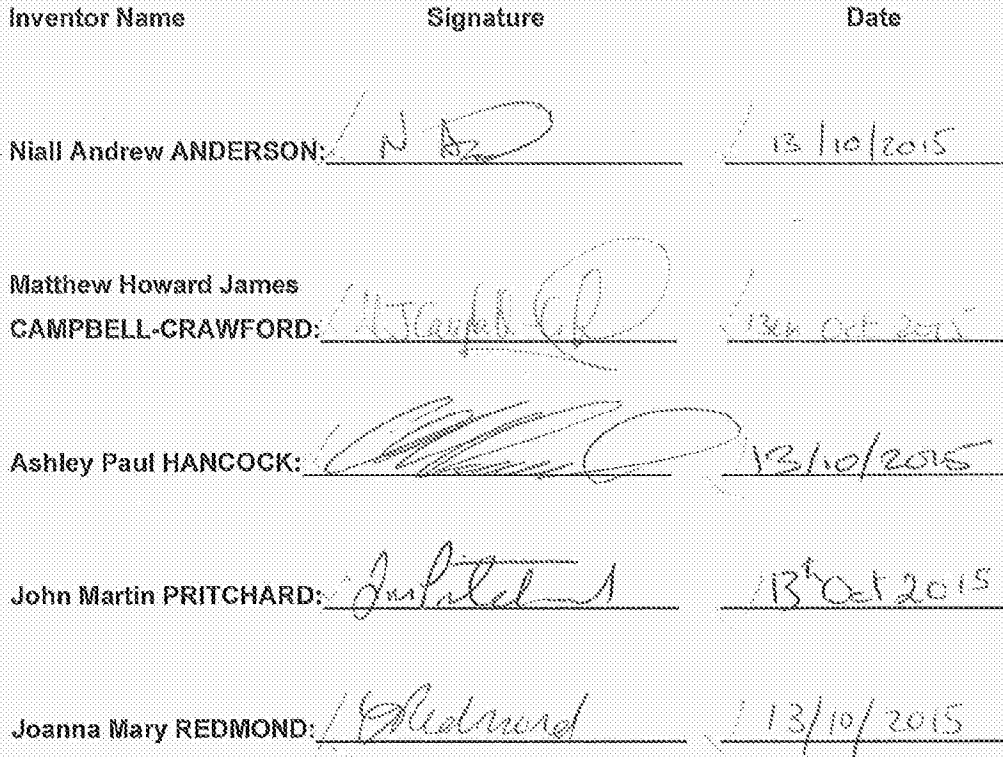 Inventor Name Signature Date
Niall Andrew ANDERSON: N 13/10/2015
Matthew Howard James
CAMPBELL-CRAWFORD: 13th Oct 2015
Ashley Paul HANCOCK: 13/10/2015
John Martin PRITCHARD: 13th Oct 2015
Joanna Mary REDMOND: Redmond 13/10/2015